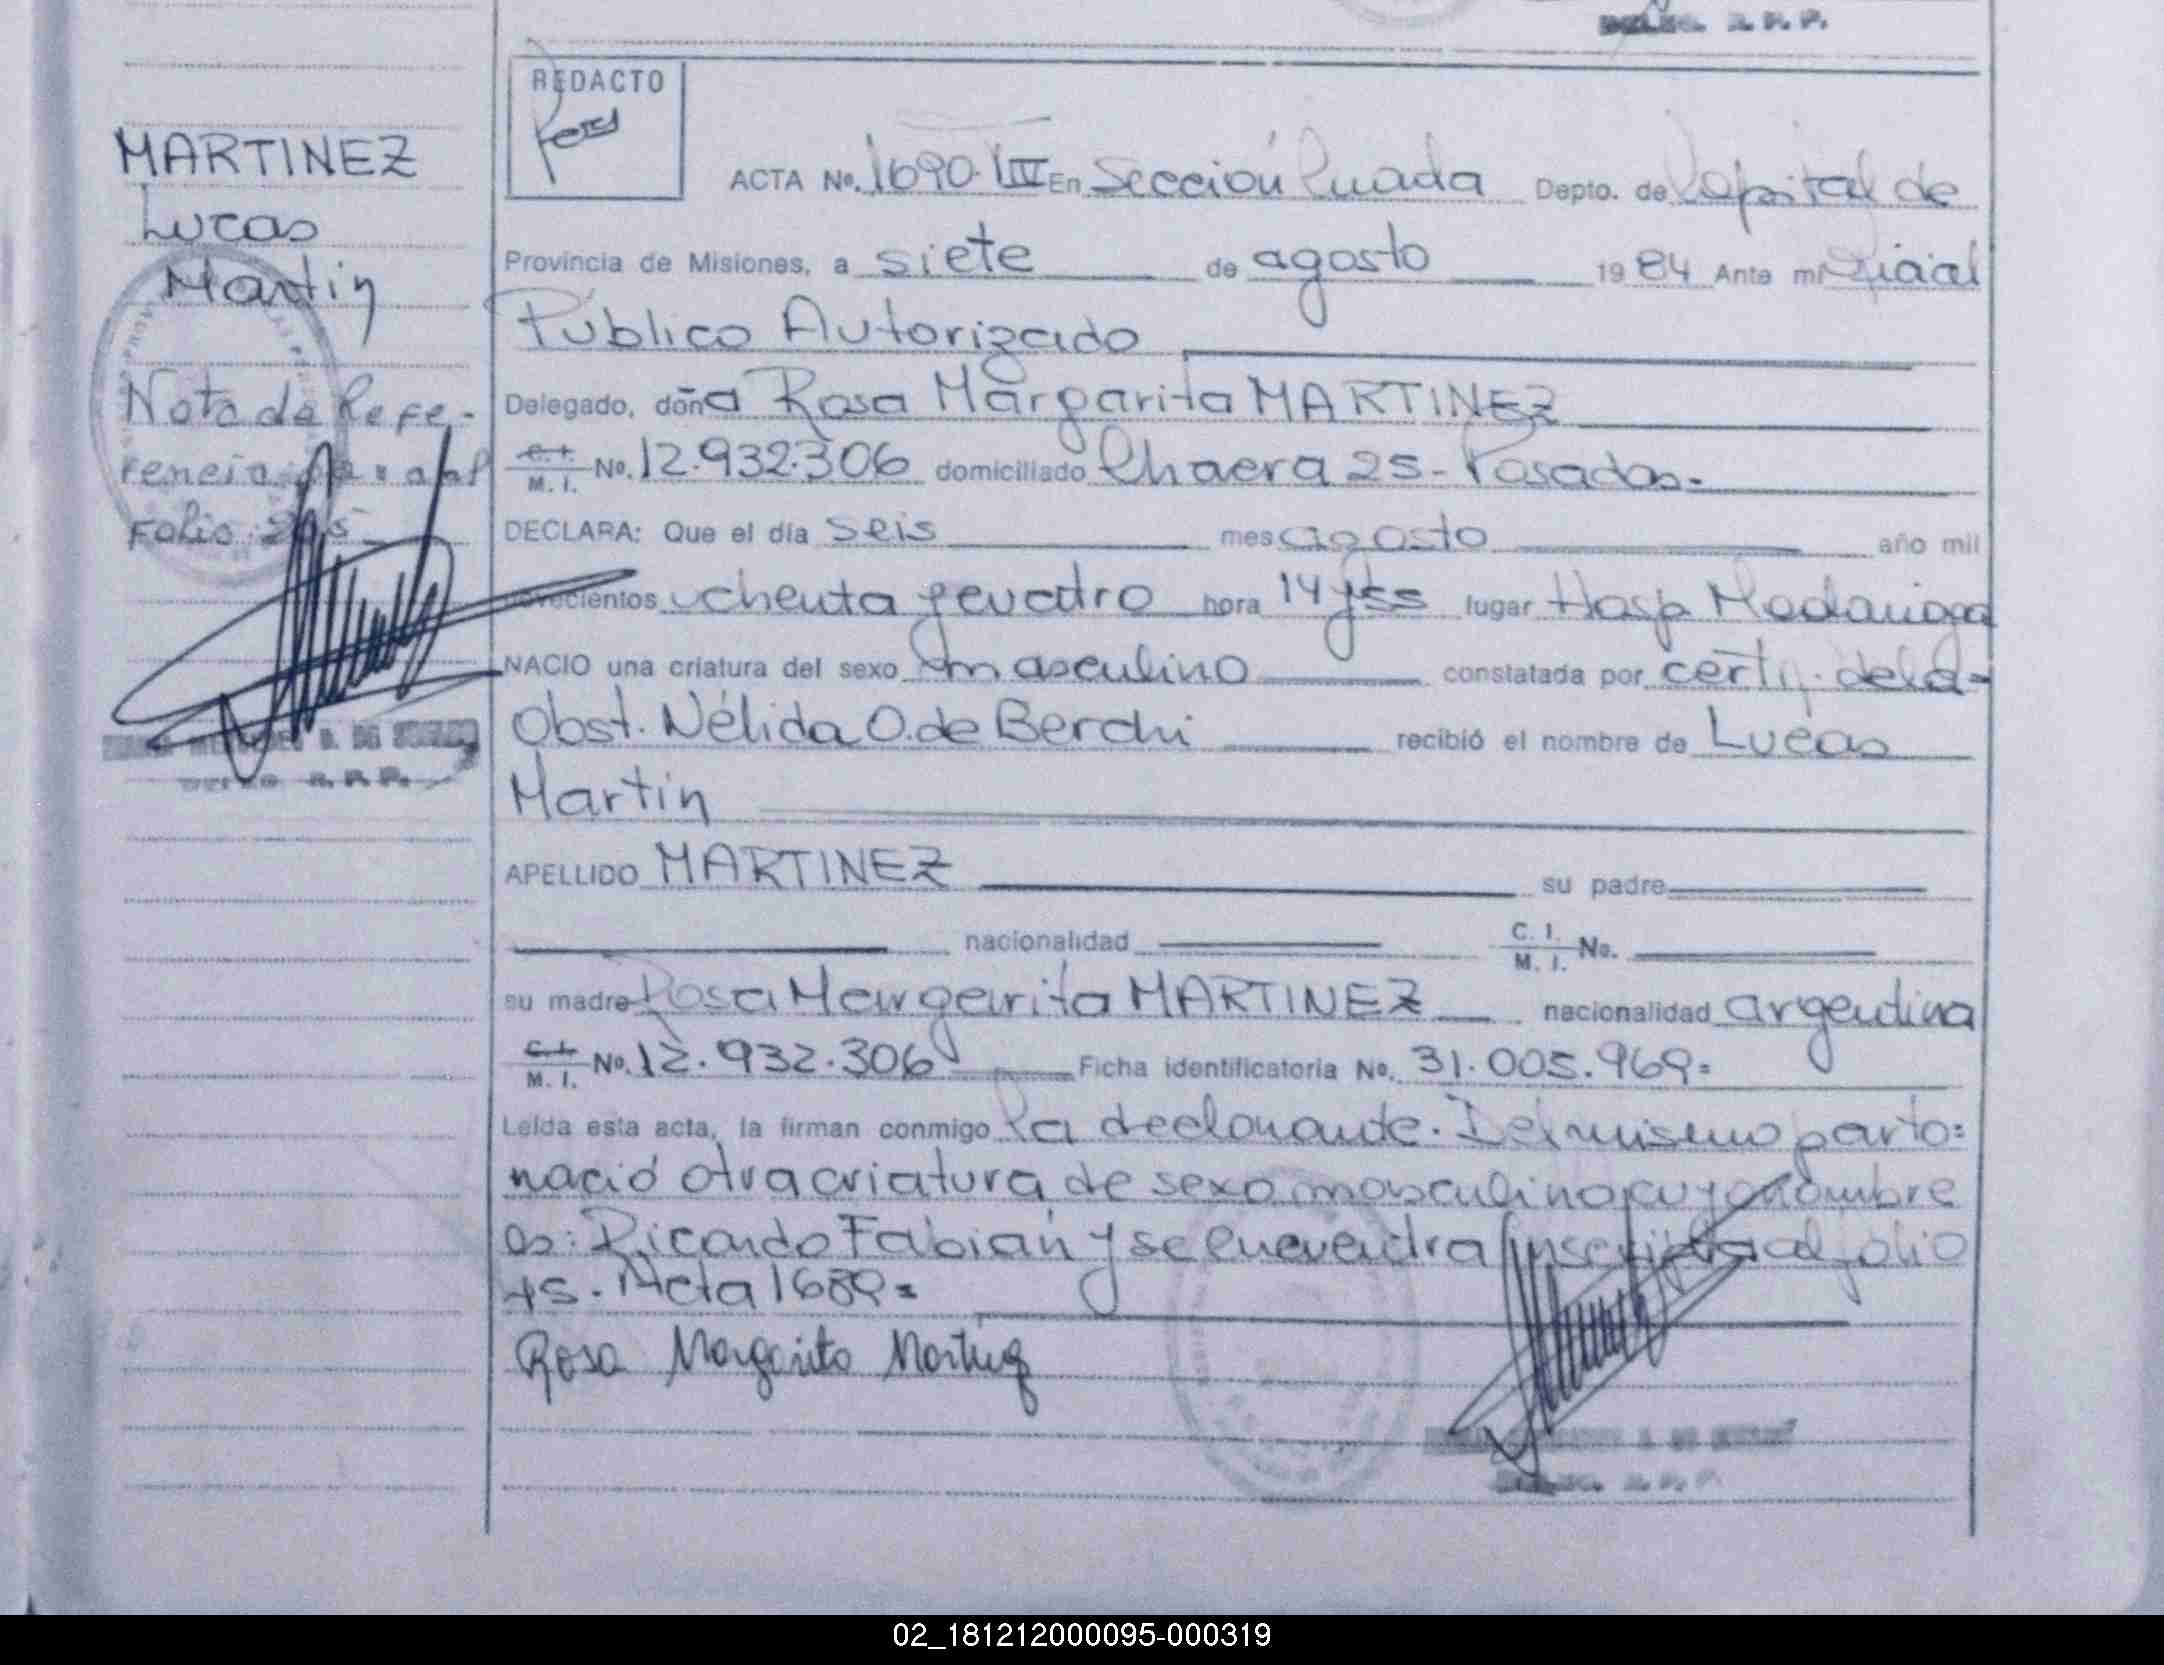 R. P. P.
REDACTO
ACTA No. 1690. III En Sección Cuada Depto. de Capital de
Provincia de Misiones, a siete de agosto 1984 Ante mi Oficial
Público Autorizado
Delegado, doña Rosa Margarita MARTINEZ
C. I. M. I. No. 12.932.306 domiciliado Chacra 25 - Posadas.-
DECLARA: Que el día seis mes agosto año mil
novecientos ochenta y cuatro hora 14 y 55 lugar Hosp Madariaga
NACIO una criatura del sexo masculino constatada por certif. de la-
Obst. Nélida O. de Berchi recibió el nombre de Lucas
Martin
APELLIDO MARTINEZ su padre
nacionalidad C. I. M. I. No.
su madre Rosa Margarita MARTINEZ nacionalidad argentina
C. I. M. I. No. 12.932.306 Ficha identificatoria No. 31.005.969=
Leída esta acta, la firman conmigo la declarante. Del mismo parto=
nació otra criatura de sexo masculino, cuyo nombre
es: Ricardo Fabián y se encuentra al folio
45. Acta 1689=
Rosa Margarita Martinez
MARTINEZ
Lucas
Martin
Nota de Refe-
rencia al
Folio
R. P. P.
02_181212000095-000319